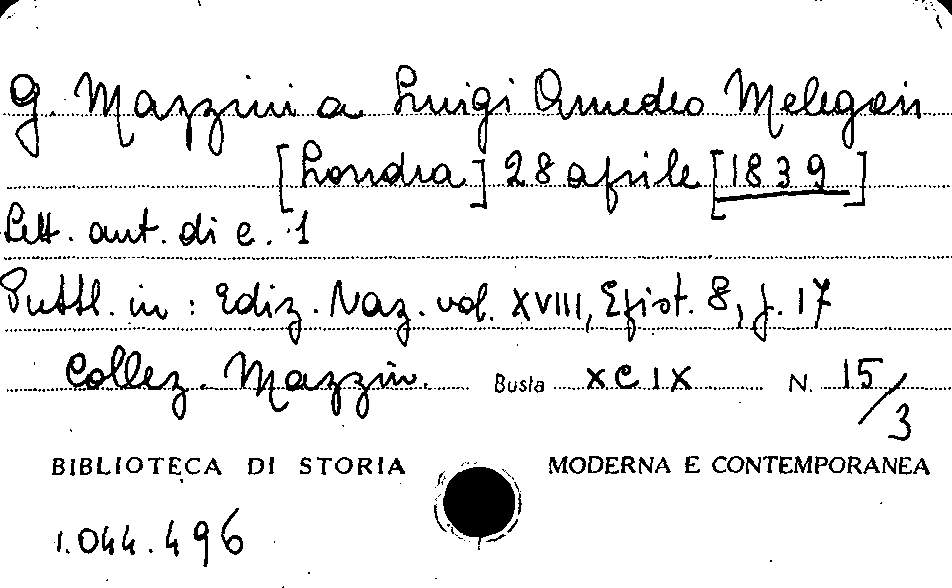 G. Mazzini a Luigi Amedeo Melegari
[Londra] 28 aprile [1839]
Lett. aut. di c. 1
Pubbl. in: Ediz. Naz. vol. XVIII, Epist. 8, p. 17
Collez. Mazzin. Busta XCIX N. 15/3
BIBLIOTECA DI STORIA MODERNA E CONTEMPORANEA
1.044.496